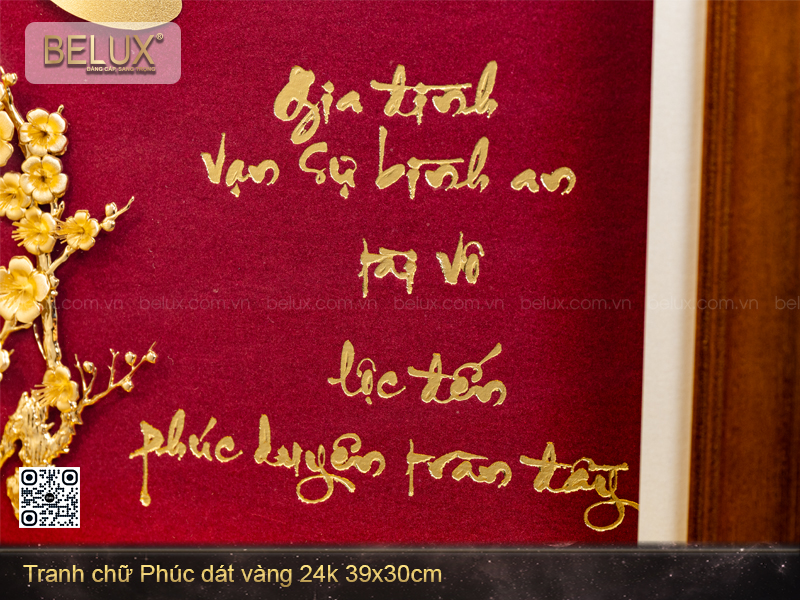 BELUX®
ĐẲNG CẤP, SANG TRỌNG
Gia định
vạn sự bình an
tài vô
lộc tến
phúc duyên tràn đầy
belux.com.vn belux.com.vn belux.com.vn belux.com.vn belux.com.vn belux.com.vn
Tranh chữ Phúc dát vàng 24k 39x30cm